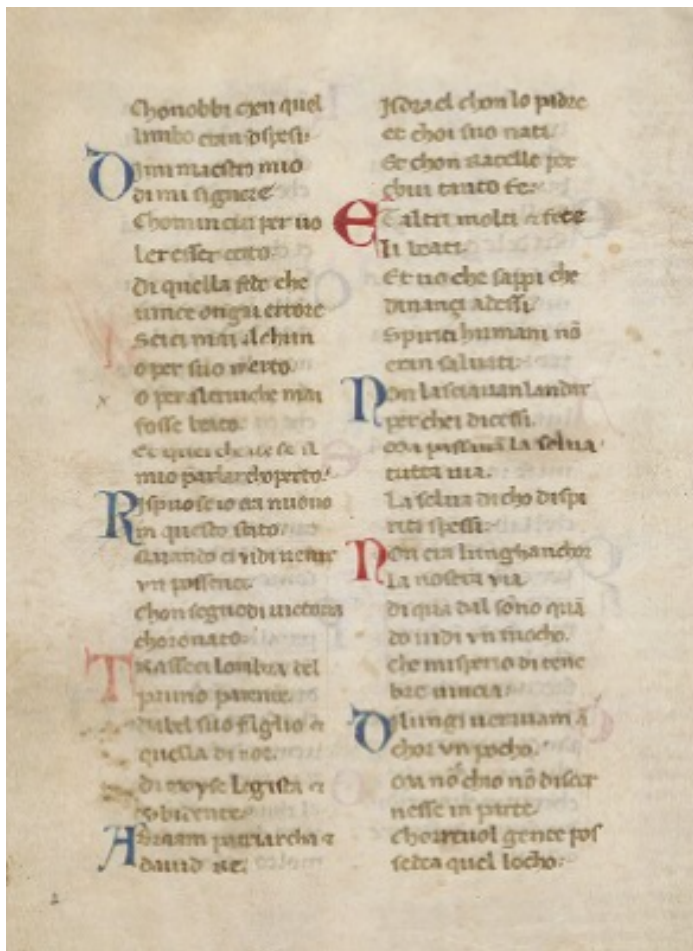 Chonobbi cħen quel
limbo eran sospesi.
Dimi maestro mio
di mi signore
Chominciai per uo
ler esser certo.
Di quella fede che
uince ongni errore
Scici mai alchun
o per suo merto.
o per altrui che mai
fosse beato.
Et quei che intese il
mio parlar choperto.
Rispuose io era nuouo
in questo stato.
Quando ci uidi uenir
vn possente.
Chon segno di uictoria
choronato.
Trasseci lombra del
primo parente.
dabel suo figlio et
quella di noe.
di moyse legista et
obidente.
Abraam patriarcha et
dauid re.
Isdrael chon lo padre
et choi suo nati.
Et chon rachelle per
chui tanto fe.
Et altri molti et fece
li beati.
Et uo che sappi che
dinançi adessi.
Spiriti humani nō
eran saluati.
Non lasciauan landar
perchei dicessi.
ma passauā la selua
tutta uia.
La selua dicho dispi
riti spessi.
Non era lungha anchor
la nostra via
di qua dal sōno quā
do uidi vn fuocho.
che misperio di tene
bre uincia.
Di lungi uerauam ā
chor vn pocho.
ma nō chio nō discer
nesse in parte.
Chorreuol gente pos
sedea quel locho.